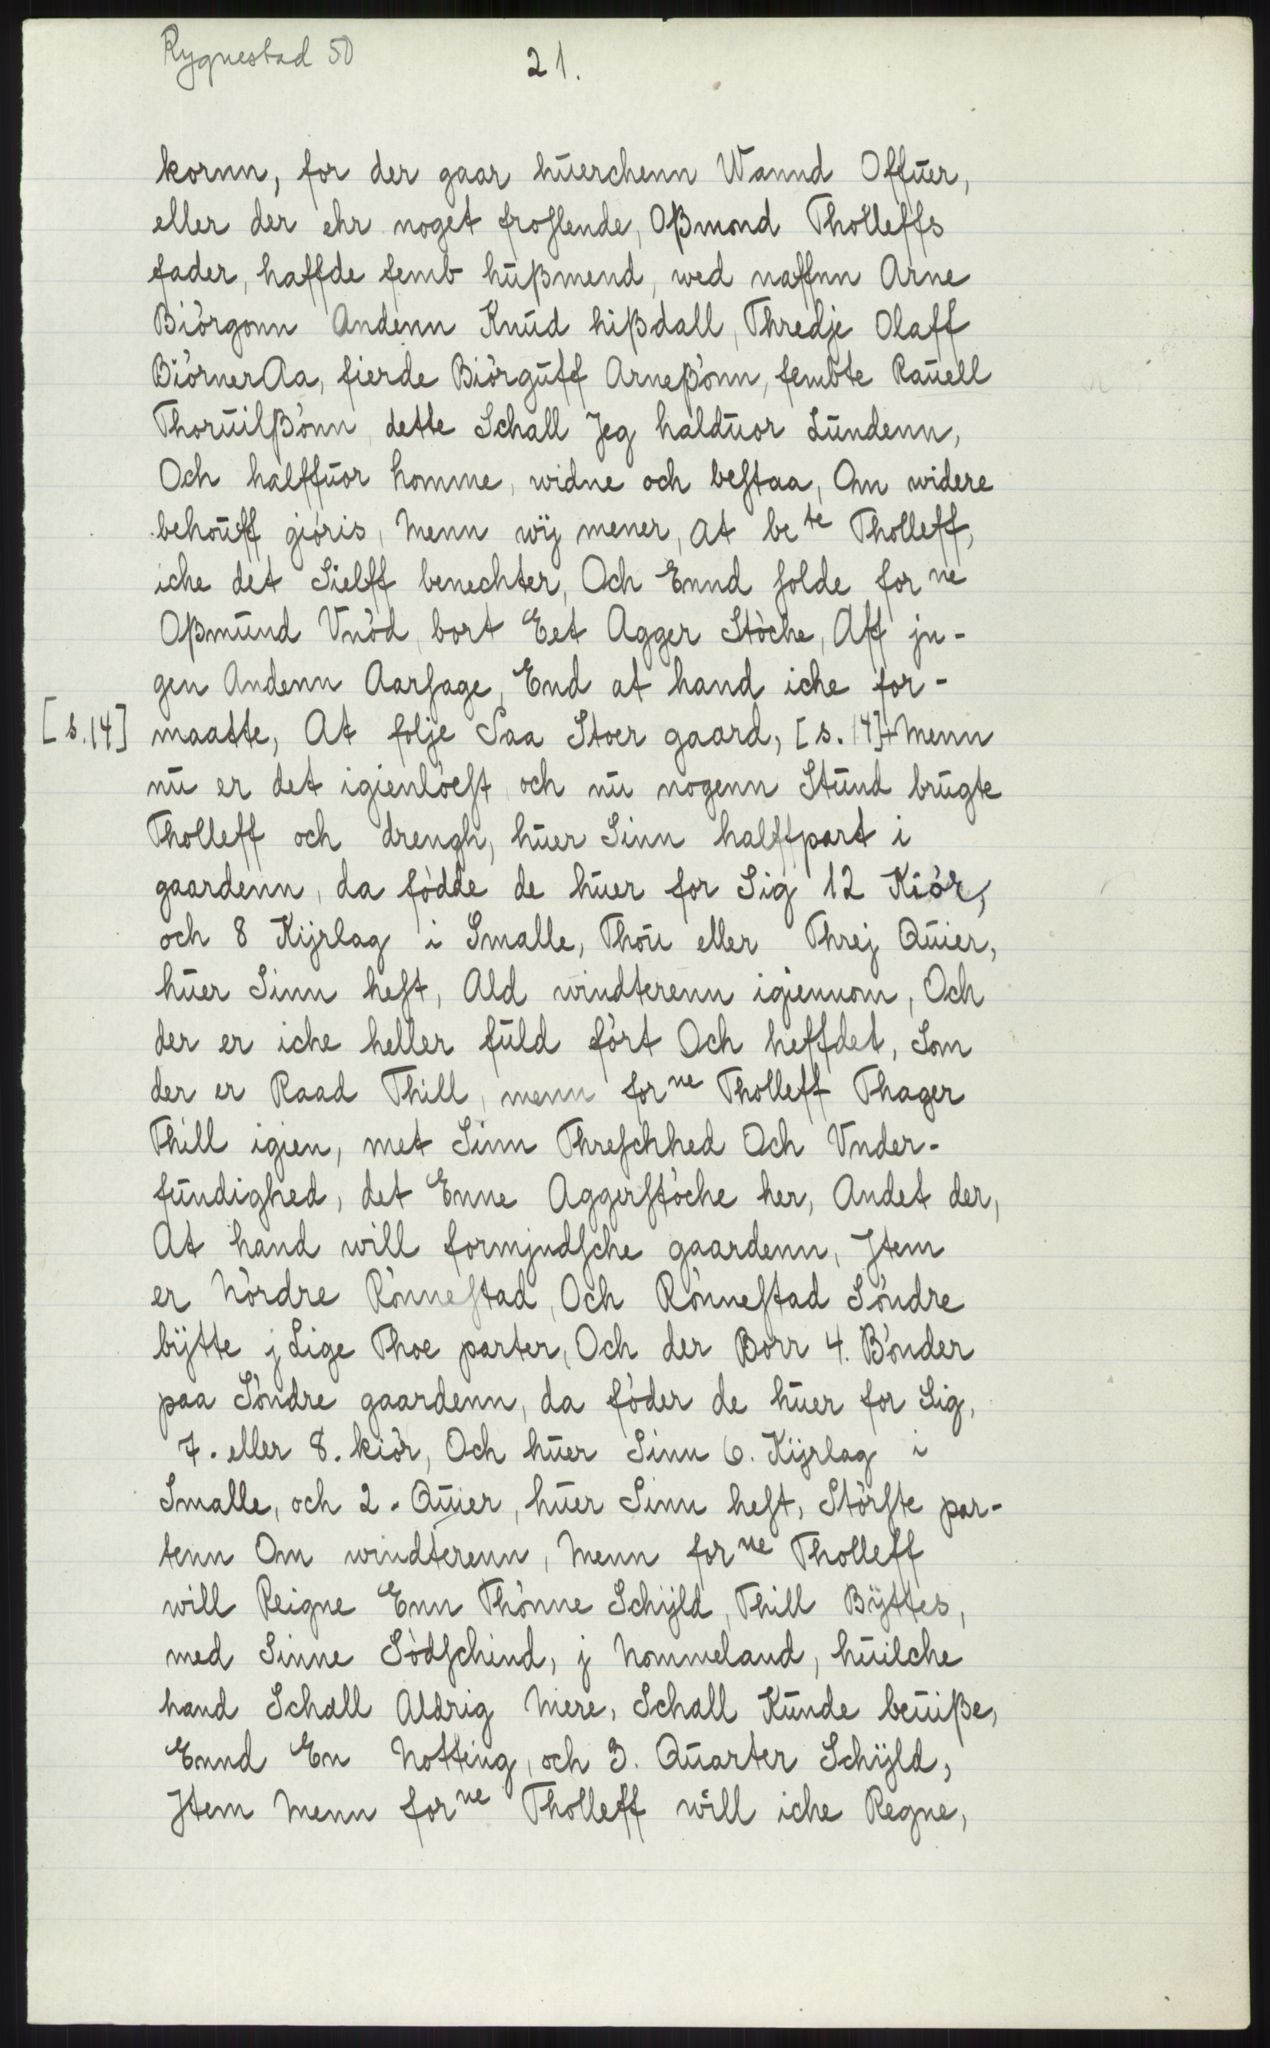 Rygnestad 50
21.
kornn, for der gaar huerchenn Wannd Offuer,
eller der ehr noget froslende, Oßmond Tholleffs
fader, haffde femb hußmend, wed naffnn Arne
Biörgonn Andenn Knud hißdall, Thredje Olaff
BiörnerAa, fierde Biörguff Arneßönn, fembte Rauell
Thoruilßönn, dette Schall Jeg halduor Lundenn,
Och halffuor homme, widne och bestaa, Om widere
behouff giöris, Menn wÿ mener, At be te Tholleff,
iche det Sielff benechter, Och Ennd solde for ne
Oßmund Vnöd, bort Eet Agger Stöche, Aff jn-
gen Andenn Aarsage, End at hand iche for-
[s.14] maatte, At følje Saa Stoer gaard, [s. 14] + Menn
nu er det igienlöest, och nu nogenn Stund brugte
Tholleff och drengh, huer Sinn halffpart i
gaardenn, da födde de huer for Sig 12 Kiör,
och 8 Kijrlag i Smalle, Thou eller Threj Quier,
huer Sinn hest, Ald windterenn igiennom, Och
der er iche heller fuld fört Och heffdet, Som
der er Raad Thill, menn for ne Tholleff Thager
Thill igien, met Sinn Threschhed Och Vnder-
fundighed, det Enne Aggerstöche her, Andet der,
At hand will formjndsche gaardenn, Jtem
er Nördre Rönnestad, Och Rönnestad Söndre
bÿtte j Lige Thoe parter, Och der Borr 4. Bönder
paa Söndre gaardenn, da föder de huer for Sig,
7. eller 8. kiör, Och huer Sinn 6. Kijrlag i
Smalle, och 2. Quier, huer Sinn hest, Störste par-
tenn Om windterenn, Menn for ne Tholleff
will Reigne Enn Thönne Schÿld, Thill Bÿttes,
med Sinne Södschind, j Nommeland, huilche
hand Schall Aldrig Mere, Schall Kunde beuiße,
Ennd En Notting, och 3. Quarter Schÿld,
Jtem Menn for ne Tholleff will iche Regne,